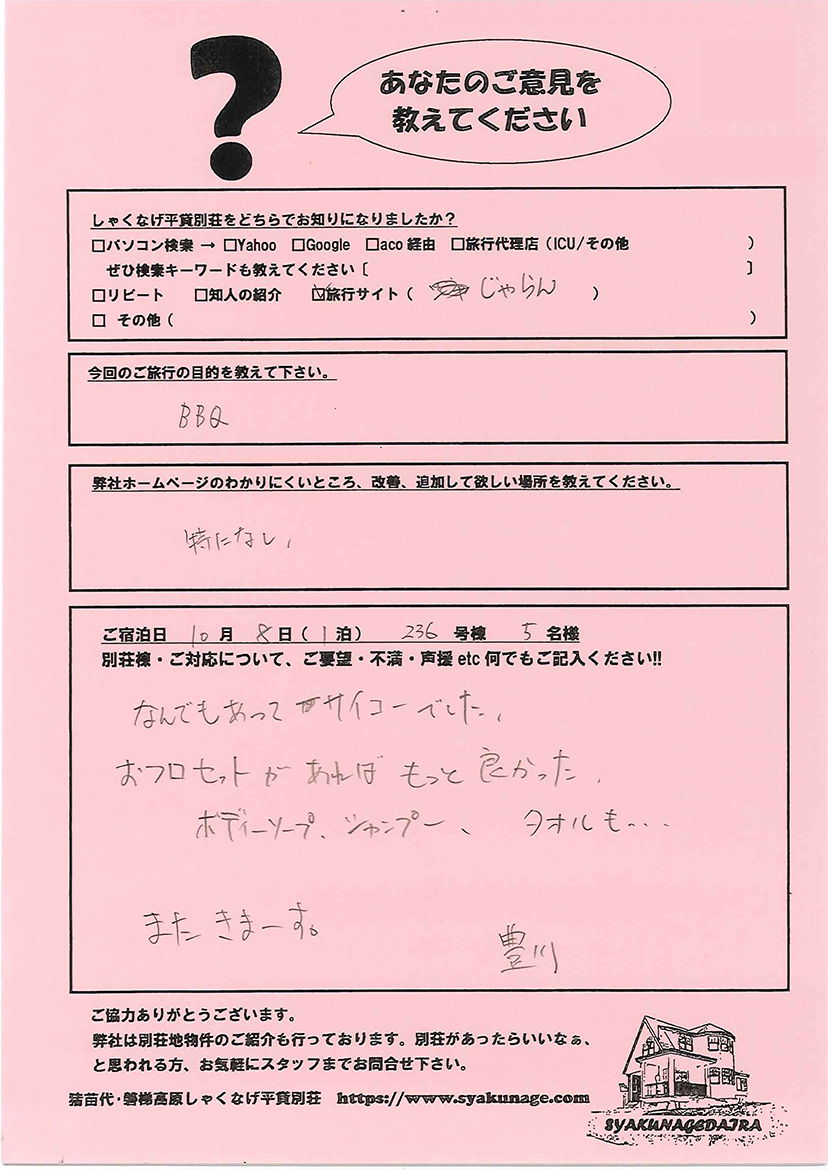 ?
あなたのご意見を
教えてください
しゃくなげ平貸別荘をどちらでお知りになりましたか？
□パソコン検索 → □Yahoo □Google □aco 経由 □旅行代理店（ICU/その他 ）
ぜひ検索キーワードも教えてください［ ］
□リピート □知人の紹介 ☑旅行サイト（ じゃらん ）
□ その他（ ）
今回のご旅行の目的を教えて下さい。
BBQ
弊社ホームページのわかりにくいところ、改善、追加して欲しい場所を教えてください。
特になし、
ご宿泊日 10月 8日（1泊） 236 号棟 5 名様
別荘棟・ご対応について、ご要望・不満・声援 etc 何でもご記入ください!!
なんでもあってサイコーでした、
おフロセットがあればもっと良かった、
ボディーソープ、シャンプー、 タオルも...
またきまーす。
豊川
ご協力ありがとうございます。
弊社は別荘地物件のご紹介も行っております。別荘があったらいいなぁ、
と思われる方、お気軽にスタッフまでお問合せ下さい。
猪苗代・磐梯高原しゃくなげ平貸別荘 https://www.syakunage.com
SYAKUNAGEDAIRA